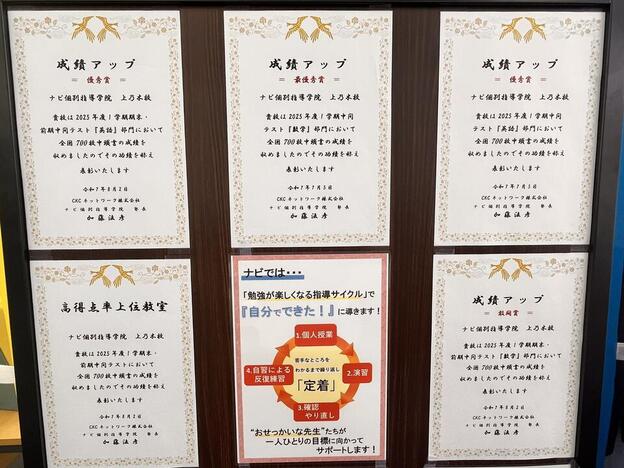 成績アップ
= 優秀賞 =
ナビ個別指導学院 上乃木校
貴校は2025年度1学期期末・
前期中間テスト『英語』部門において
全国700校中頭書の成績を
収めましたのでその功績を称え
表彰いたします
令和7年8月2日
CKCネットワーク株式会社
ナビ個別指導学院 塾長
加藤法彦
成績アップ
= 最優秀賞 =
ナビ個別指導学院 上乃木校
貴校は2025年度1学期中間
テスト『数学』部門において
全国700校中頭書の成績を
収めましたのでその功績を称え
表彰いたします
令和7年7月5日
CKCネットワーク株式会社
ナビ個別指導学院 塾長
加藤法彦
成績アップ
= 優秀賞 =
ナビ個別指導学院 上乃木校
貴校は2025年度1学期中間
テスト『英語』部門において
全国700校中頭書の成績を
収めましたのでその功績を称え
表彰いたします
令和7年7月5日
CKCネットワーク株式会社
ナビ個別指導学院 塾長
加藤法彦
高得点率上位教室
ナビ個別指導学院 上乃木校
貴校は2025年度1学期期末・
前期中間テストにおいて
全国700校中頭書の成績を
収めましたのでその功績を称え
表彰いたします
令和7年8月2日
CKCネットワーク株式会社
ナビ個別指導学院 塾長
加藤法彦
ナビでは・・・
「勉強が楽しくなる指導サイクル」で
『自分でできた!』に導きます!
1.個人授業
苦手なところを
わかるまで繰り返し
「定着」
2.演習
3.確認
やり直し
4.自習による
反復練習
"おせっかいな先生"たちが
一人ひとりの目標に向かって
サポートします!
成績アップ
= 敢闘賞 =
ナビ個別指導学院 上乃木校
貴校は2025年度1学期期末・
前期中間テスト『数学』部門において
全国700校中頭書の成績を
収めましたのでその功績を称え
表彰いたします
令和7年8月2日
CKCネットワーク株式会社
ナビ個別指導学院 塾長
加藤法彦